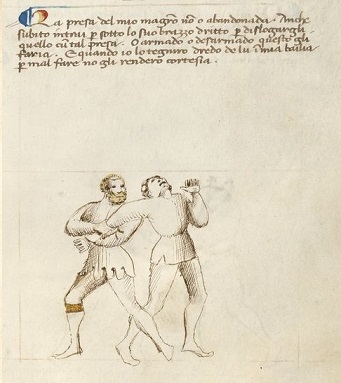 La presa del mio magistro non ò abandonada. Anche
subito intrai per sotto lo suo brazzo dritto per dislogargli
quello cum tal presa. O armado o desarmado questo gli
faria. E quando io lo tegniró dredo de lu in mia bailia
per mal fare no gli renderò cortesia.